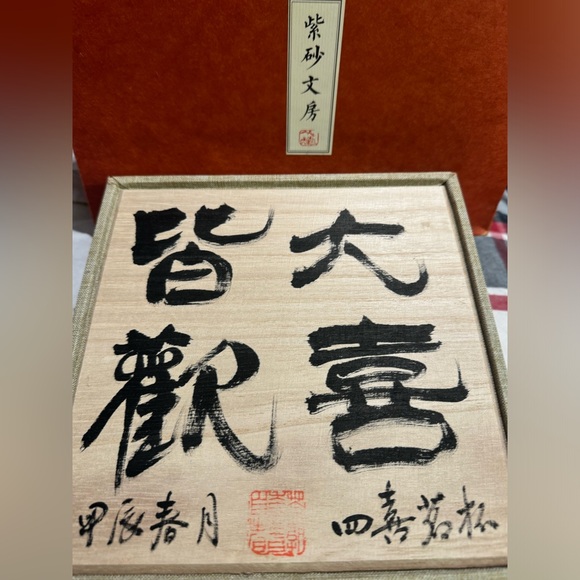 紫砂文房
皆大
歡喜
甲辰春月
四喜茗杯